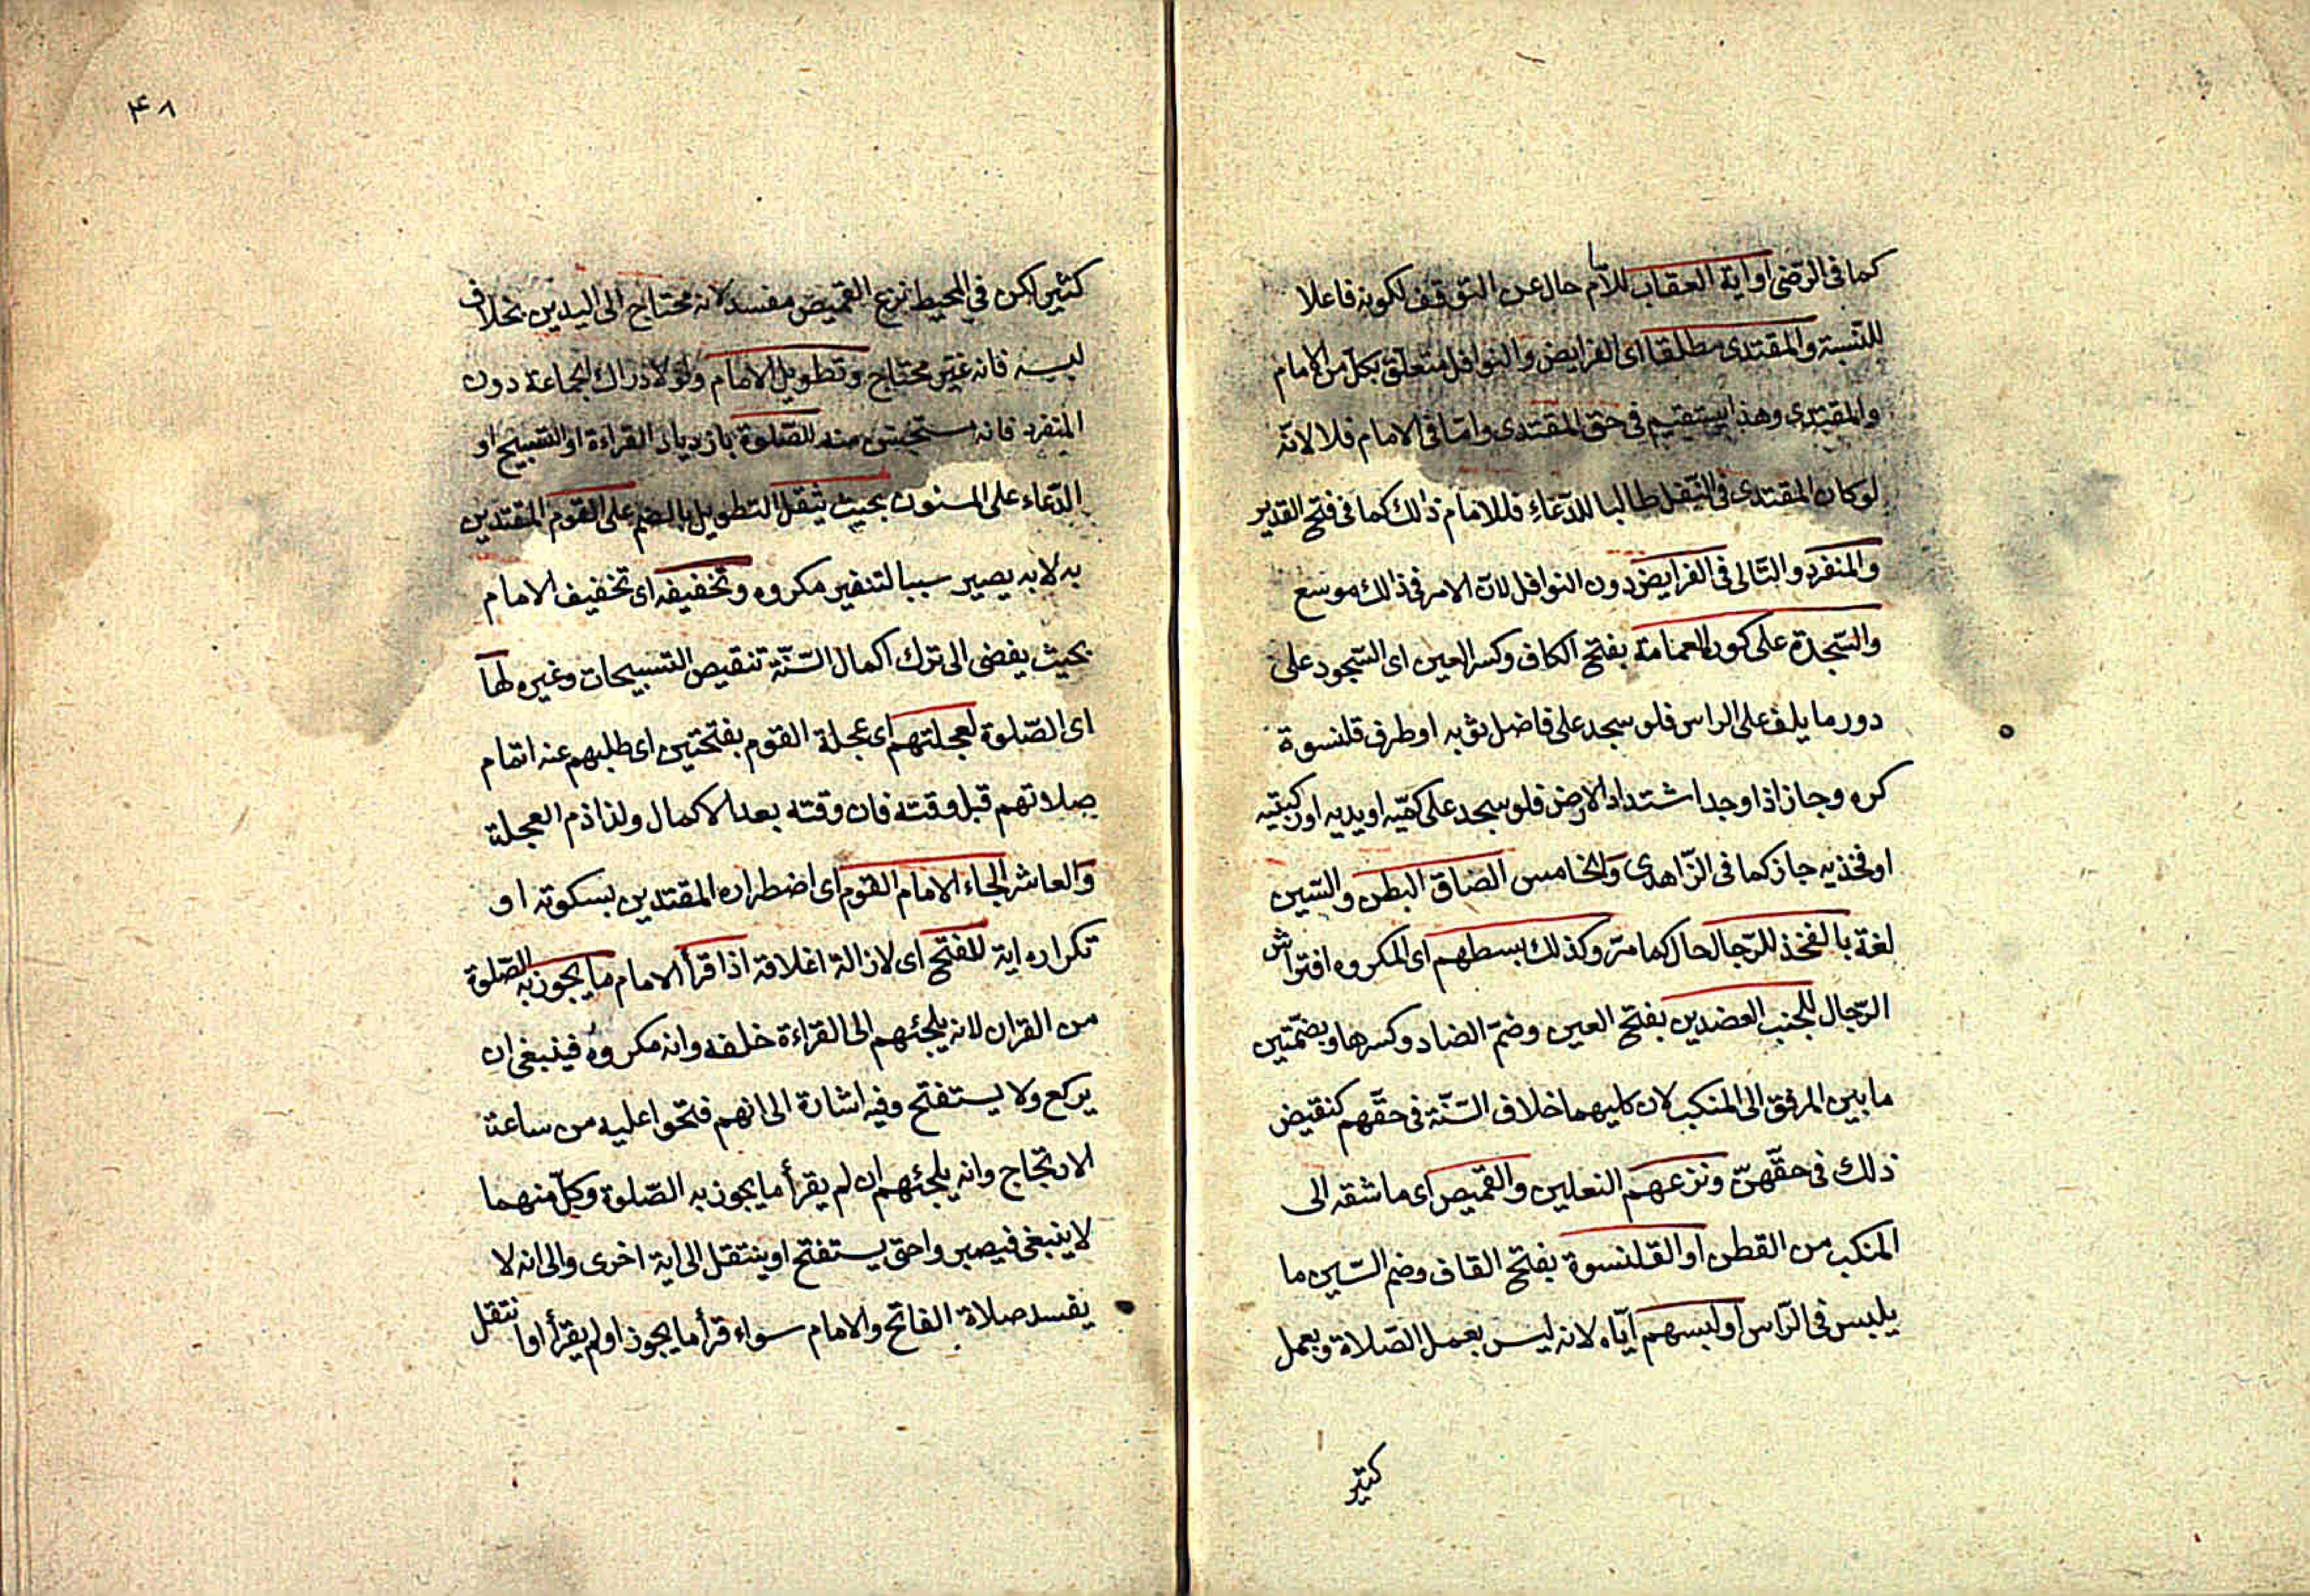 كما فى الرضى او اية العقاب للامام حال عن التوقف لكونه فاعلا
للنسبة والمقتدى مطلقا اى الفرايض والنوافل متعلق بكل من الامام
والمقتدى وهذا يستقيم فى حق المقتدى واما فى الامام فلا لانّه
لو كان المقتدى فى النفل طالبا للدّعاءِ فللامام ذلك كما فى فتح القدير
والمنفرد والتالى فى الفرايض دون النوافل لان الامر فى ذالك موسع
والسّجدة على كور العمامة بفتح الكاف وكسر العين اى السّجود على
دور ما يلف على الراس فلو سجد على فاضل ثوبه او طرف قلنسوة
كره وجاز اذا وجد اشتداد الارض فلو سجد على كمّيه او يديه او ركبتيه
او فخذيه جاز كما فى الزّاهدى والخامس الصاق البطن والسّين
لغة بالفخذ للرّجال حال كما مرّ وكذلك بسطهم اى المكروه افتراش
الرّجال للجنب العضدين بفتح العين وضمّ الضاد وكسرها وبضمّتين
ما بين المرفق الى المنكب لان كليهما خلاف السّنّة فى حقّهم كنقيض
ذلك فى حقّهنّ ونزعهم النعلين والقميص اى ما شقه الى
المنكب من القطن او القلنسوة بفتح القاف وضم السّين ما
يلبس فى الرّاس او لبسهم ايّاه لانه ليس بعمل الصّلاة وبعمل
كثير
٤٨
كثير لكن في المحيط نزع القميص مفسد لانه محتاج الى اليدين بخلاف
لبسه فانه غير محتاج وتطويل الامام ولو لادراك الجماعة دون
المنفرد فانه مستحسن منه للصّلوة بازدياد القراءة او التسبيح او
الدّعاء على المسنون بحيث يثقل التطويل بالضم على القوم المقتدين
به لا به يصير سببا لتنفير مكروه وتخفيفه اى تخفيف الامام
بحيث يفضى الى ترك اكمال السّنّة تنقيص التسبيحات وغيره لها
اى الصّلوة لعجلتهم اى عجلة القوم بفتحتين اى طلبهم عنه اتمام
صلاتهم قبل وقته فان وقته بعد الاكمال ولذا ذم العجلة
والعاشر الجاء الامام القوم اى اضطراره المقتدين بسكوته او
تكراره اية للفتح اى لازالة اغلاقه اذا قرأ الامام ما يجوز به الصّلوة
من القران لانه يلجئهم الى القراءة خلفه وانه مكروه فينبغى ان
يركع ولا يستفتح وفيه اشارة الى انهم فتحوا عليه من ساعة
الارتجاج وانه يلجئهم ان لم يقرأ ما يجوز به الصّلوة وكلّ منهما
لا ينبغى فيصبروا حتى يستفتح او ينتقل الى اية اخرى والى انه لا
يفسد صلاة الفاتح والامام سواء قرأ ما يجوز او لم يقرأ او انتقل